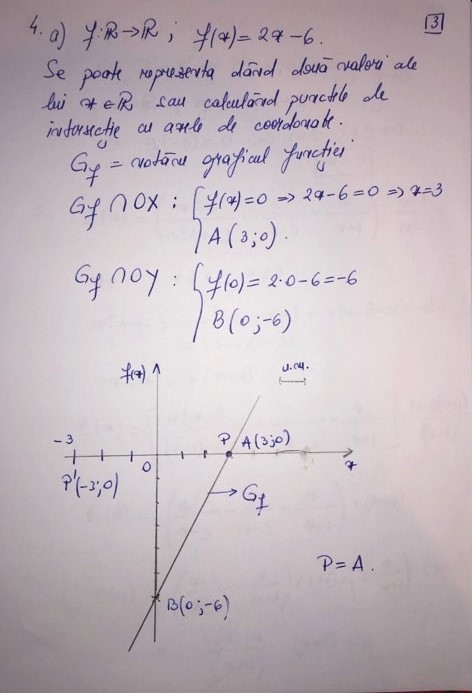 4. a) f:ℝ→ℝ ; f(x)=2x-6.
3
Se poate reprezenta dând două valori ale
lui x∈ℝ sau calculând punctele de
intersecție cu axele de coordonate.
Gf = notăm graficul funcției
Gf ∩ OX : { f(x)=0 => 2x-6=0 => x=3
A(3;0).
Gf ∩ OY : { f(0)=2·0-6=-6
B(0;-6)
f(x)
u.m.
-3
P A(3;0)
0
x
P'(-3;0)
→ Gf
P=A.
B(0;-6)